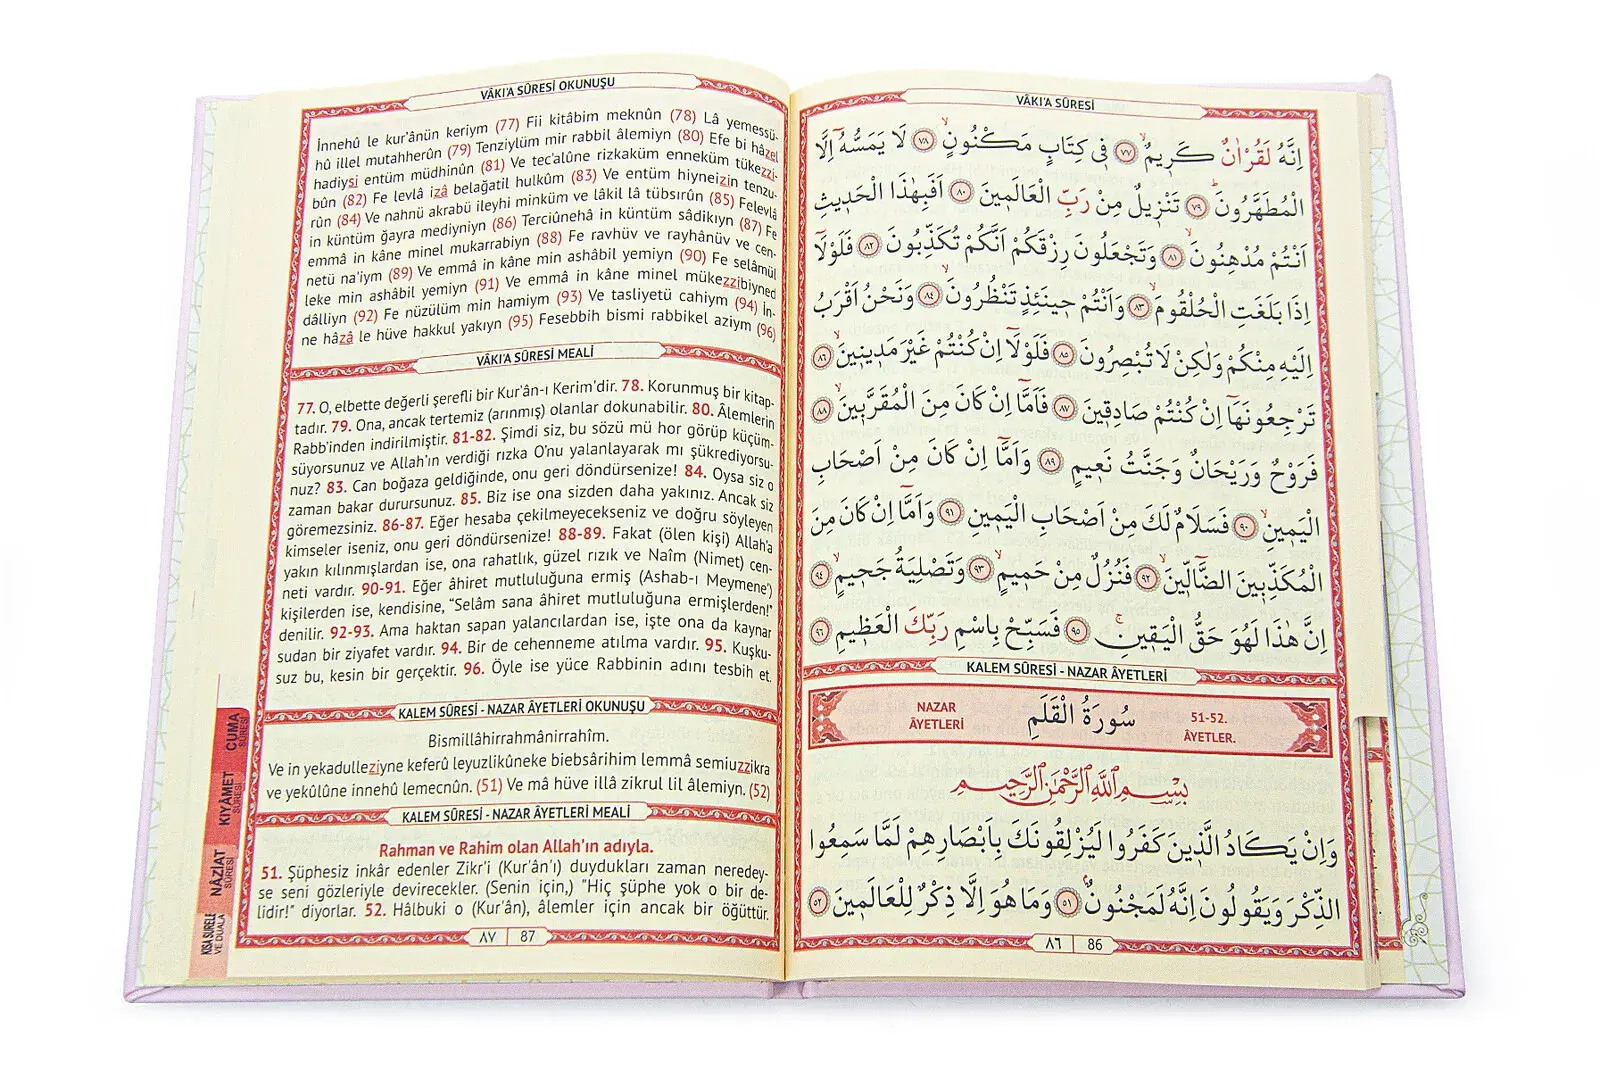 VÂKI'A SÛRESİ
اِنَّهُ لَقُرْاٰنٌ كَر۪يمٌۙ ﴿٧٧﴾ ف۪ي كِتَابٍ مَكْنُونٍۙ ﴿٧٨﴾ لَا يَمَسُّهُٓ اِلَّا
الْمُطَهَّرُونَۜ ﴿٧٩﴾ تَنْز۪يلٌ مِنْ رَبِّ الْعَالَم۪ينَ ﴿٨٠﴾ اَفَبِهٰذَا الْحَد۪يثِ
اَنْتُمْ مُدْهِنُونَۙ ﴿٨١﴾ وَتَجْعَلُونَ رِزْقَكُمْ اَنَّكُمْ تُكَذِّبُونَ ﴿٨٢﴾ فَلَوْلَٓا
اِذَا بَلَغَتِ الْحُلْقُومَۙ ﴿٨٣﴾ وَاَنْتُمْ ح۪ينَئِذٍ تَنْظُرُونَۙ ﴿٨٤﴾ وَنَحْنُ اَقْرَبُ
اِلَيْهِ مِنْكُمْ وَلٰكِنْ لَا تُبْصِرُونَ ﴿٨٥﴾ فَلَوْلَٓا اِنْ كُنْتُمْ غَيْرَ مَد۪ين۪ينَۙ ﴿٨٦﴾
تَرْجِعُونَهَٓا اِنْ كُنْتُمْ صَادِق۪ينَ ﴿٨٧﴾ فَاَمَّٓا اِنْ كَانَ مِنَ الْمُقَرَّب۪ينَۙ ﴿٨٨﴾
فَرَوْحٌ وَرَيْحَانٌ وَجَنَّتُ نَع۪يمٍ ﴿٨٩﴾ وَاَمَّٓا اِنْ كَانَ مِنْ اَصْحَابِ
الْيَم۪ينِۙ ﴿٩٠﴾ فَسَلَامٌ لَكَ مِنْ اَصْحَابِ الْيَم۪ينِ ﴿٩١﴾ وَاَمَّٓا اِنْ كَانَ مِنَ
الْمُكَذِّب۪ينَ الضَّٓالّ۪ينَۙ ﴿٩٢﴾ فَنُزُلٌ مِنْ حَم۪يمٍۙ ﴿٩٣﴾ وَتَصْلِيَةُ جَح۪يمٍۙ ﴿٩٤﴾
اِنَّ هٰذَا لَهُوَ حَقُّ الْيَق۪ينِۚ ﴿٩٥﴾ فَسَبِّحْ بِاسْمِ رَبِّكَ الْعَظ۪يمِ ﴿٩٦﴾
KALEM SÛRESİ - NAZAR ÂYETLERİ
NAZAR ÂYETLERİ سُورَةُ الْقَلَمِ 51-52. ÂYETLER.
بِسْمِ اللّٰهِ الرَّحْمٰنِ الرَّح۪يمِ
وَاِنْ يَكَادُ الَّذ۪ينَ كَفَرُوا لَيُزْلِقُونَكَ بِاَبْصَارِهِمْ لَمَّا سَمِعُوا
الذِّكْرَ وَيَقُولُونَ اِنَّهُ لَمَجْنُونٌۢ ﴿٥١﴾ وَمَا هُوَ اِلَّا ذِكْرٌ لِلْعَالَم۪ينَ ﴿٥٢﴾
٨٦ | 86
VÂKI'A SÛRESİ OKUNUŞU
İnnehû le kur'ânün keriym (77) Fii kitâbim meknûn (78) Lâ yemessü-
hû illel mutahherûn (79) Tenziylüm mir rabbil âlemiyn (80) Efe bi hâzel
hadiysi entüm müdhinûn (81) Ve tec'alûne rizkaküm enneküm tükezzi-
bûn (82) Fe levlâ izâ belağatil hulkûm (83) Ve entüm hiyneizin tenzu-
rûn (84) Ve nahnü akrabü ileyhi minküm ve lâkil lâ tübsırûn (85) Felevlâ
in küntüm ğayra mediyniyn (86) Terciûnehâ in küntüm sâdikıyn (87) Fe
emmâ in kâne minel mukarrabiyn (88) Fe ravhüv ve rayhânüv ve cen-
netü na'iym (89) Ve emmâ in kâne min ashâbil yemiyn (90) Fe selâmül
leke min ashâbil yemiyn (91) Ve emmâ in kâne minel mükezzibiyned
dâlliyn (92) Fe nüzülüm min hamiym (93) Ve tasliyetü cahiym (94) İn-
ne hâzâ le hüve hakkul yakıyn (95) Fesebbih bismi rabbikel aziym (96)
VÂKI'A SÛRESİ MEALİ
77. O, elbette değerli şerefli bir Kur'ân-ı Kerim'dir. 78. Korunmuş bir kitap-
tadır. 79. Ona, ancak tertemiz (arınmış) olanlar dokunabilir. 80. Âlemlerin
Rabb'inden indirilmiştir. 81-82. Şimdi siz, bu sözü mü hor görüp küçüm-
süyorsunuz ve Allah'ın verdiği rızka O'nu yalanlayarak mı şükrediyorsu-
nuz? 83. Can boğaza geldiğinde, onu geri döndürsenize! 84. Oysa siz o
zaman bakar durursunuz. 85. Biz ise ona sizden daha yakınız. Ancak siz
göremezsiniz. 86-87. Eğer hesaba çekilmeyecekseniz ve doğru söyleyen
kimseler iseniz, onu geri döndürsenize! 88-89. Fakat (ölen kişi) Allah'a
yakın kılınmışlardan ise, ona rahatlık, güzel rızık ve Naîm (Nimet) cen-
neti vardır. 90-91. Eğer âhiret mutluluğuna ermiş (Ashab-ı Meymene')
kişilerden ise, kendisine, “Selâm sana âhiret mutluluğuna ermişlerden!”
denilir. 92-93. Ama haktan sapan yalancılardan ise, işte ona da kaynar
sudan bir ziyafet vardır. 94. Bir de cehenneme atılma vardır. 95. Kuşku-
suz bu, kesin bir gerçektir. 96. Öyle ise yüce Rabbinin adını tesbih et.
KALEM SÛRESİ - NAZAR ÂYETLERİ OKUNUŞU
Bismillâhirrahmânirrahîm.
Ve in yekadulleziyne keferû leyuzlikûneke biebsârihim lemmâ semiuzzikra
ve yekûlûne innehû lemecnûn. (51) Ve mâ hüve illâ zikrul lil âlemiyn. (52)
KALEM SÛRESİ - NAZAR ÂYETLERİ MEALİ
Rahman ve Rahim olan Allah'ın adıyla.
51. Şüphesiz inkâr edenler Zikr'i (Kur'ân'ı) duydukları zaman neredey-
se seni gözleriyle devirecekler. (Senin için,) "Hiç şüphe yok o bir de-
lidir!" diyorlar. 52. Hâlbuki o (Kur'ân), âlemler için ancak bir öğüttür.
٨٧ | 87
CUMA
SÛRESİ
KIYÂMET
SÛRESİ
NÂZİÂT
SÛRESİ
KISA SURELER
VE DUALAR